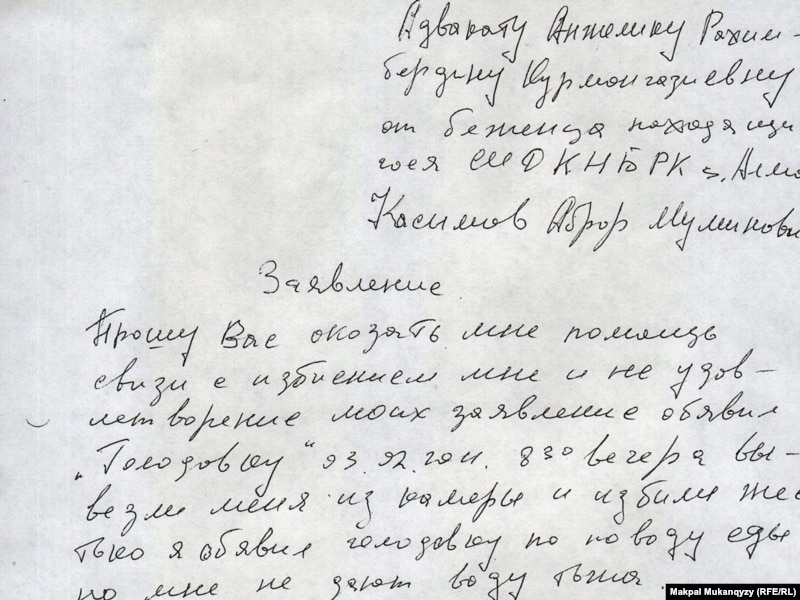 Адвакату Анжелику Рахим-
бердину Курмонгазиевну
от беженца находящи
гося СИ ДКНБРК г. Алма
Касимов Аброр Муминови
Заявление
Прошу Вас оказать мне помощь
свизи с избиением мне и не удов-
летворение моих заявление обявил
„Голодовку“ 03.02.2011. 8 30 вечера вы-
везли меня из камеры и избили жес
тько я обявил голодовку по поводу еды
но мне не дают воду
Makpal Mukanqyzy (RFE/RL)